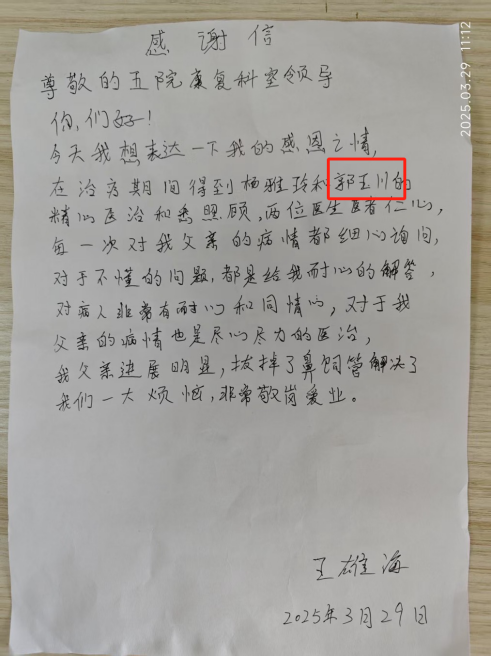 感谢信
尊敬的五院康复科室领导
你们好！
今天我想表达一下我的感恩之情，
在治疗期间得到杨雅玲和郭玉川的
精心医治和悉照顾，两位医生医者仁心，
每一次对我父亲的病情都细心询问，
对于不懂的问题，都是给我耐心的解答，
对病人非常有耐心和同情心，对于我
父亲的病情也是尽心尽力的医治，
我父亲进展明显，拔掉了鼻饲管解决了
我们一大烦恼，非常敬岗爱业。
王雄海
2025年3月29日
2025.03.29 11:12